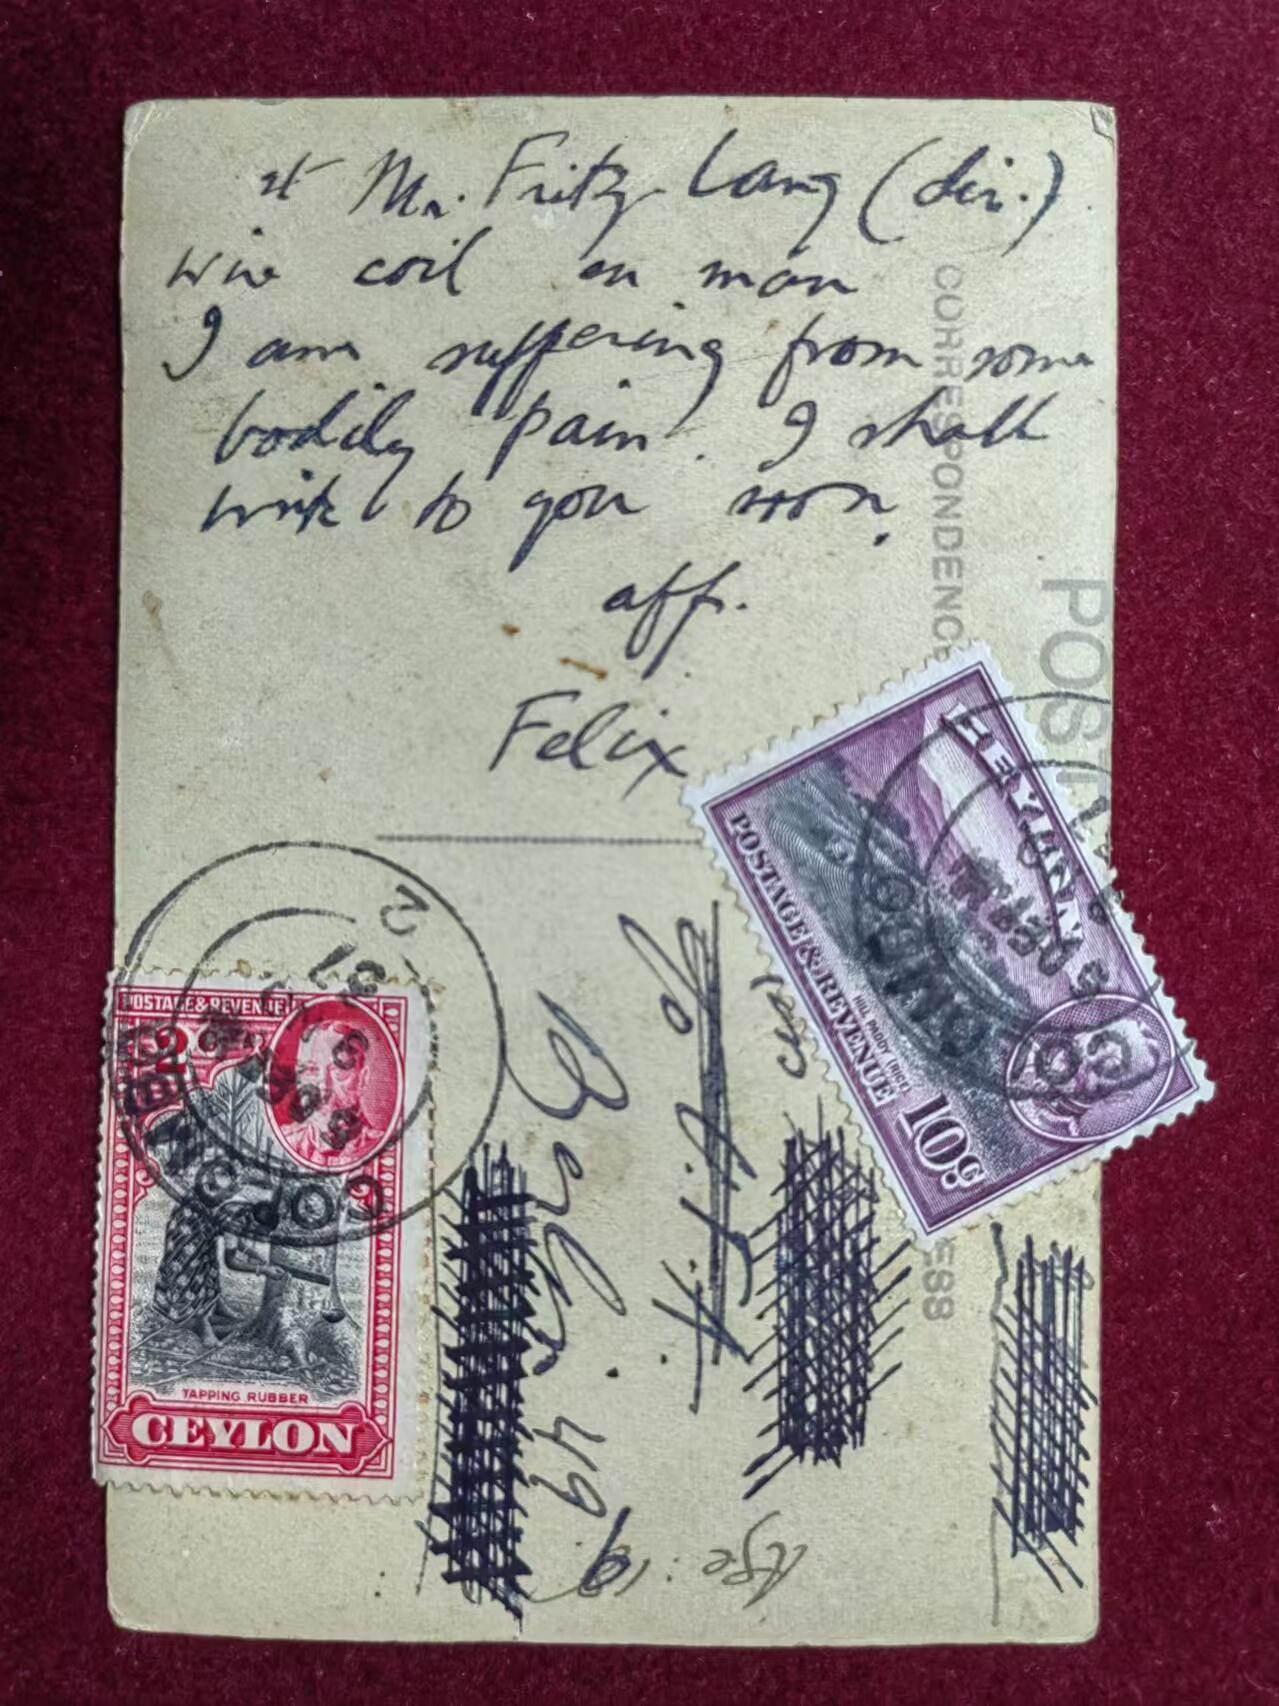 st Mr. Fritz Lang (dir.)
wire coil on man
I am suffering from some
bodily pain. I shall
write to you soon.
aff.
Felix
CORRESPONDENCE
POST
CEYLON
POSTAGE & REVENUE
HILL PADDY (RICE)
10c
COLOMBO
POSTAGE & REVENUE
2c
COLOMBO
37
TAPPING RUBBER
CEYLON
c/o
Berlin. 49
Age: 19